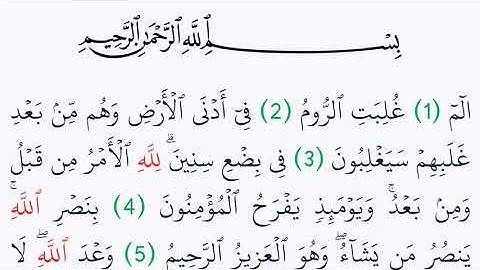 بِسْمِ ٱللَّهِ ٱلرَّحْمَٰنِ ٱلرَّحِيمِ
الٓمٓ (1) غُلِبَتِ ٱلرُّومُ (2) فِىٓ أَدْنَى ٱلْأَرْضِ وَهُم مِّنۢ بَعْدِ
غَلَبِهِمْ سَيَغْلِبُونَ (3) فِى بِضْعِ سِنِينَ ۗ لِلَّهِ ٱلْأَمْرُ مِن قَبْلُ
وَمِنۢ بَعْدُ ۚ وَيَوْمَئِذٍ يَفْرَحُ ٱلْمُؤْمِنُونَ (4) بِنَصْرِ ٱللَّهِ ۚ
يَنصُرُ مَن يَشَآءُ ۖ وَهُوَ ٱلْعَزِيزُ ٱلرَّحِيمُ (5) وَعْدَ ٱللَّهِ ۖ لَا